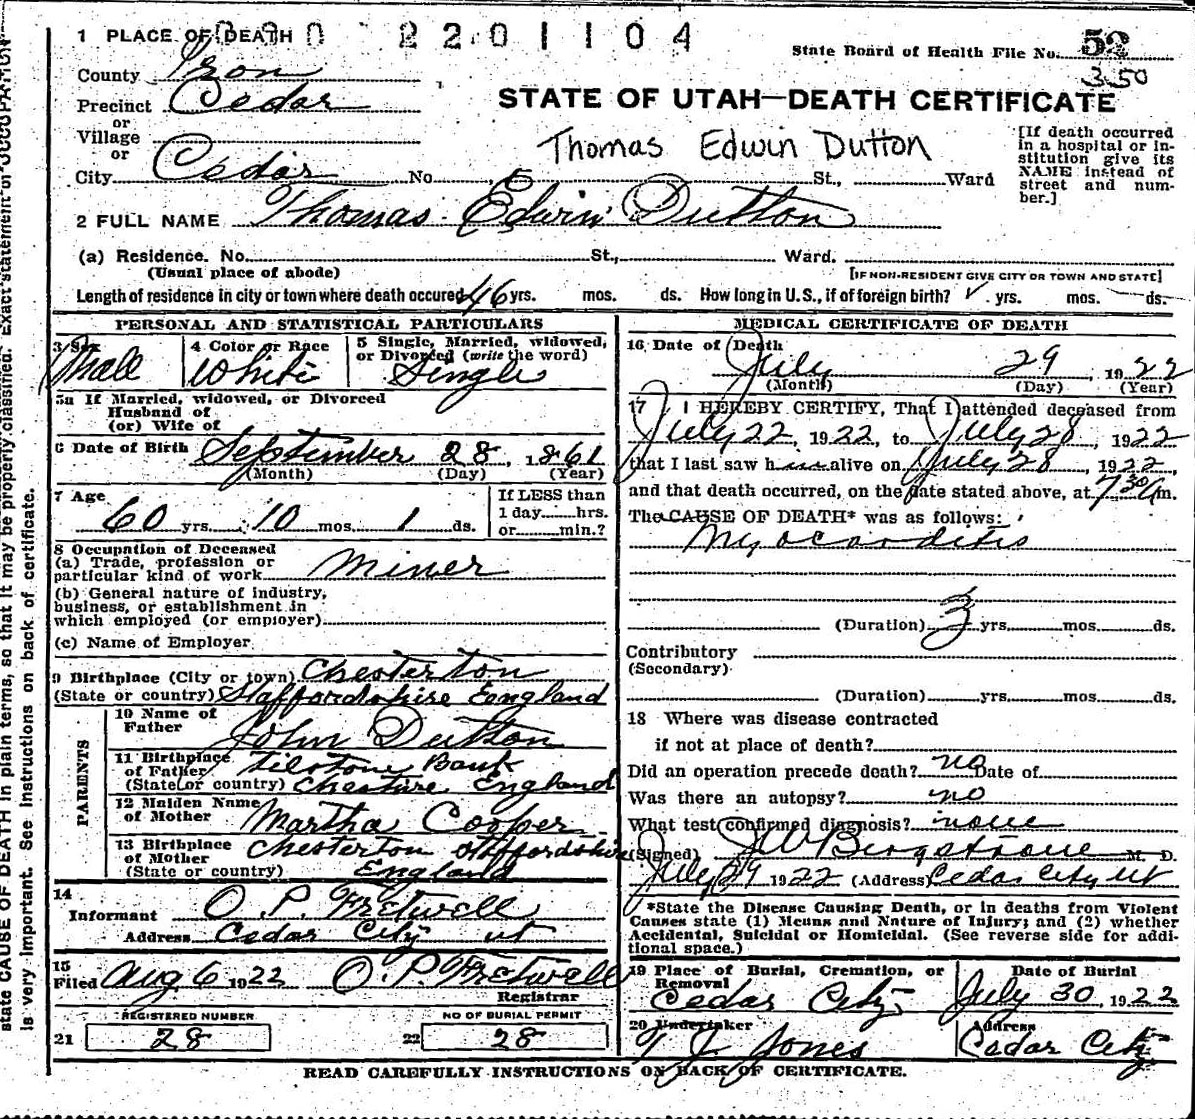 1 PLACE OF DEATH
2201104
State Board of Health File No. 52
350
County Iron
Precinct Cedar
STATE OF UTAH—DEATH CERTIFICATE
or
Village
or
Thomas Edwin Dutton
[If death occurred in a hospital or institution give its NAME instead of street and number.]
City Cedar No. St., Ward
2 FULL NAME Thomas Edwin Dutton
(a) Residence. No. St., Ward.
(Usual place of abode) [IF NON-RESIDENT GIVE CITY OR TOWN AND STATE]
Length of residence in city or town where death occured 46 yrs. mos. ds. How long in U.S., if of foreign birth? yrs. mos. ds.
PERSONAL AND STATISTICAL PARTICULARS
3 Sex Male
4 Color or Race White
5 Single, Married, widowed, or Divorced (write the word) Single
5a If Married, widowed, or Divorced
Husband of
(or) Wife of
6 Date of Birth September 28, 1861
(Month) (Day) (Year)
7 Age 60 yrs. 10 mos. 1 ds.
If LESS than
1 day hrs.
or min.?
8 Occupation of Deceased
(a) Trade, profession or
particular kind of work Miner
(b) General nature of industry,
business, or establishment in
which employed (or employer)
(c) Name of Employer
9 Birthplace (City or town) Chesterton
(State or country) Staffordshire England
PARENTS
10 Name of
Father John Dutton
11 Birthplace
of Father Bank
(State or country) Cheshire England
12 Maiden Name
of Mother Martha Cooper
13 Birthplace
of Mother Chesterton Staffordshire
(State or country) England
14
Informant O. P. Fretwell
Address Cedar City ut
15
Filed Aug 6 1922 O. P. Fretwell
Registrar
REGISTERED NUMBER
21 28
NO OF BURIAL PERMIT
22 28
MEDICAL CERTIFICATE OF DEATH
16 Date of Death
July 29, 1922
(Month) (Day) (Year)
17 I HEREBY CERTIFY, That I attended deceased from
July 22, 1922, to July 28, 1922
that I last saw him alive on July 28, 1922,
and that death occurred, on the date stated above, at 7 30 a m.
The CAUSE OF DEATH* was as follows:
Myocarditis
(Duration) 3 yrs. mos. ds.
Contributory
(Secondary)
(Duration) yrs. mos. ds.
18 Where was disease contracted
if not at place of death?
Did an operation precede death? no Date of
Was there an autopsy? no
What test confirmed diagnosis? none
(Signed) M. D.
July 29 1922 (Address) Cedar City ut
*State the Disease Causing Death, or in deaths from Violent
Causes state (1) Means and Nature of Injury; and (2) whether
Accidental, Suicidal or Homicidal. (See reverse side for addi-
tional space.)
19 Place of Burial, Cremation, or
Removal
Cedar City
Date of Burial
July 30, 1922
20 Undertaker
T J Jones
Address
Cedar City
READ CAREFULLY INSTRUCTIONS ON BACK OF CERTIFICATE.
state CAUSE OF DEATH in plain terms, so that it may be properly classified. Exact statement of OCCUPATION
is very important. See instructions on back of certificate.